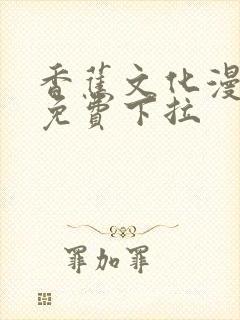 香蕉文化漫
免費下拉
罪加罪